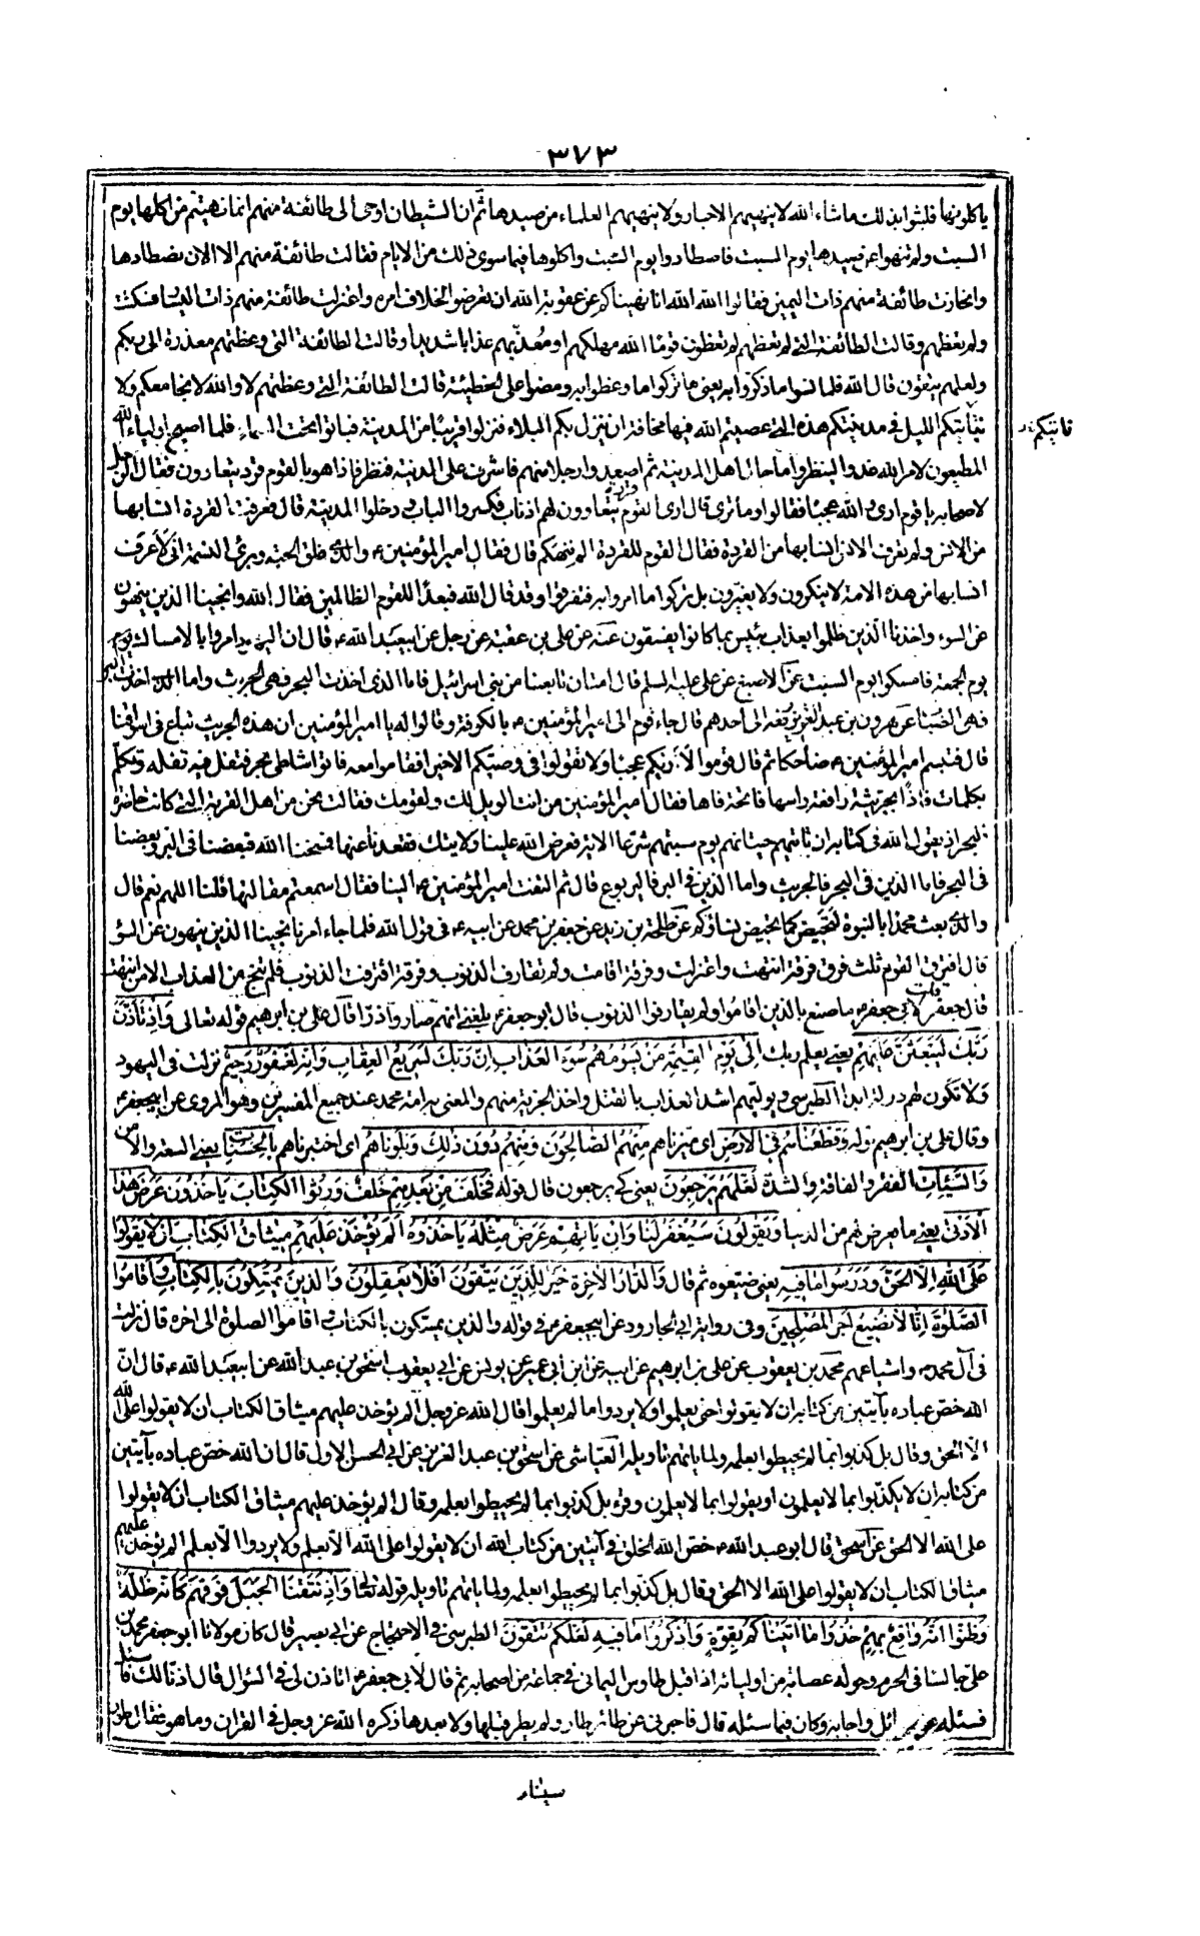 ٣٧٣
ياكلونها فلبثوا بذلك ما شاء الله لا ينهيهم الاحبار ولا ينهيهم العلماء من صيدها ثم ان الشيطان اوحى الى طائفة منهم انما نهيتم من اكلها يوم
السبت ولم تنهوا عن صيدها يوم السبت فاصطادوا يوم السبت واكلوها فيما سوى ذلك من الايام فقالت طائفة منهم الا الان نصطادها
وانحازت طائفة منهم ذات اليمين فقالوا الله الله انا نهيناكم عن عقوبة الله ان تعرضوا لخلاف امره واعتزلت طائفة منهم ذات اليسار فسكتت
ولم تعظهم وقالت الطائفة التي لم تعظهم لم تعظون قوما الله مهلكهم او معذبهم عذابا شديدا وقالت الطائفة التي وعظتهم معذرة الى ربكم
ولعلهم يتقون قال الله فلما نسوا ما ذكروا به يعني ما تركوا ما وعظوا به ومضوا على الخطيئة قالت الطائفة التي وعظتهم لا والله لا نجامعكم ولا
نبايتكم الليل في مدينتكم هذه التي عصيتم الله فيها مخافة ان ينزل بكم البلاء فنزلوا قريبا من المدينة فباتوا تحت السماء فلما اصبح اولياء الله
المطيعون لامر الله غدوا لينظروا ما حال اهل المدينة ثم اصعدوا رجلا منهم فاشرف على المدينة فنظر فاذا هو بالقوم قردة يتعاوون فقال الرجل
لاصحابه يا قوم ارى والله عجبا فقالوا وما ترى قال ارى القوم قردة يتعاوون لهم اذناب فكسروا الباب ودخلوا المدينة قال فعرفت القردة انسابها
من الانس ولم تعرف الانس انسابها من القردة فقال القوم للقردة الم ننهكم قال فقال امير المؤمنين ع والذي فلق الحبة وبرئ النسمة اني لاعرف
انسابها من هذه الامة لا ينكرون ولا يغيرون بل تركوا ما امروا به فتفرقوا وقد قال الله فبعدا للقوم الظالمين فقال الله وانجينا الذين ينهون
عن السوء واخذنا الذين ظلموا بعذاب بئيس بما كانوا يفسقون عنه عن علي بن عقبة عن رجل عن ابيعبد الله ع قال ان اليهود امروا بالامساك يوم
يوم الجمعة فامسكوا يوم السبت عن الاصبغ عن علي عليه السلم قال امتان تابعنا من بني اسرائيل فاما الذي اخذت البحر فهي الجريث واما الذي اخذت البر
فهي الضباب عن هرون بن عبد العزيز رفعه الى احدهم قال جاء قوم الى امير المؤمنين ع بالكوفة وقالوا له يا امير المؤمنين ان هذه الجريث تباع في اسواقنا
قال فتبسم امير المؤمنين ع ضاحكا ثم قال قوموا لاريكم عجبا ولا تقولوا في وصيكم الا خيرا فقاموا معه فاتوا شاطئ بحر فتفل فيه تفلة وتكلم
بكلمات فاذا بجريثة رافعة راسها فاتحة فاها فقال امير المؤمنين من انت الويل لك ولقومك فقالت نحن من اهل القرية التي كانت حاضرة
البحر اذ يقول الله في كتابه ان تاتيهم حيتانهم يوم سبتهم شرعا الاية فعرض الله علينا ولايتك فقعدنا عنها فمسخنا الله فبعضنا في البر وبعضنا
في البحر فاما الذين في البحر فالجريث واما الذين في البر فاليربوع قال ثم التفت امير المؤمنين ع الينا فقال اسمعتم مقالتها قلنا اللهم نعم قال
والذي بعث محمدا بالنبوة لتحيض كما تحيض نساؤكم عن طلحة بن زيد عن جعفر بن محمد عن ابيه ع في قول الله فلما جاء امرنا انجينا الذين ينهون عن السؤ
قال افترق القوم ثلث فرق فرقة انتهت واعتزلت وفرقة اقامت ولم تقارف الذنوب وفرقة اقترفت الذنوب فلم تنج من العذاب الا من انتهت
قال جعفر قلت لابي جعفر ع ما صنع بالذين اقاموا ولم يقارفوا الذنوب قال ابو جعفر ع بلغني انهم صاروا ذرا قال علي بن ابرهيم قوله تعالى وَاِذْ تَأَذَّنَ
رَبُّكَ لَيَبْعَثَنَّ عَلَيْهِمْ يعني يعلم ربك اِلٰى يَوْمِ الْقِيٰمَةِ مَنْ يَسُومُهُمْ سُوءَ الْعَذَابِ اِنَّ رَبَّكَ لَسَرِيعُ الْعِقَابِ وَاِنَّهُ لَغَفُورٌ رَحِيمٌ نزلت في اليهود
ولا تكون لهم دولة ابدا الطبرسي ويوليهم اشد العذاب بالقتل واخذ الجزية منهم والمعني به امة محمد عند جميع المفسرين وهو المروي عن ابيجعفر ع
وقال علي بن ابرهيم قوله وَقَطَّعْنَاهُمْ فِي الْاَرْضِ اي ميزناهم مِنْهُمُ الصَّالِحُونَ وَمِنْهُمْ دُونَ ذٰلِكَ وَبَلَوْنَاهُمْ اي اختبرناهم بِالْحَسَنَاتِ يعني السعة والامن
وَالسَّيِّئَاتِ الفقر والفاقة والشدة لَعَلَّهُمْ يَرْجِعُونَ يعني كي يرجعون قال قوله فَخَلَفَ مِنْ بَعْدِهِمْ خَلْفٌ وَرِثُوا الْكِتَابَ يَأْخُذُونَ عَرَضَ هٰذَا
الْاَدْنٰى يعني ما يعرض لهم من الدنيا وَيَقُولُونَ سَيُغْفَرُ لَنَا وَاِنْ يَأْتِهِمْ عَرَضٌ مِثْلُهُ يَأْخُذُوهُ اَلَمْ يُؤْخَذْ عَلَيْهِمْ مِيثَاقُ الْكِتَابِ اَنْ لَا يَقُولُوا
عَلَى اللّٰهِ اِلَّا الْحَقَّ وَدَرَسُوا مَا فِيهِ يعني ضيعوه ثم قال وَالدَّارُ الْاٰخِرَةُ خَيْرٌ لِلَّذِينَ يَتَّقُونَ اَفَلَا يَعْقِلُونَ وَالَّذِينَ يُمَسِّكُونَ بِالْكِتَابِ وَاَقَامُوا
الصَّلٰوةَ اِنَّا لَا نُضِيعُ اَجْرَ الْمُصْلِحِينَ وفي رواية ابي الجارود عن ابيجعفر ع في قوله والذين يمسكون بالكتاب واقاموا الصلوة الى اخره قال نزلت
في آل محمد ص واشياعهم محمد بن يعقوب عن علي بن ابرهيم عن ابيه عن ابن ابي عمير عن يونس عن ابي يعقوب اسحق بن عبد الله عن ابيعبد الله ع قال ان
الله خص عباده بآيتين من كتابه ان لا يقولوا حتى يعلموا ولا يردوا ما لم يعلموا قال الله عز وجل الم يؤخذ عليهم ميثاق الكتاب ان لا يقولوا على الله
الا الحق وقال بل كذبوا بما لم يحيطوا بعلمه ولما ياتهم تاويله العياشي عن اسحق بن عبد العزيز عن ابي الحسن الاول قال ان الله خص عباده بآيتين
من كتابه ان لا يكذبوا بما لا يعلمون او يقولوا بما لا يعلمون وقرء بل كذبوا بما لم يحيطوا بعلمه وقال الم يؤخذ عليهم ميثاق الكتاب ان لا يقولوا
على الله الا الحق عن اسحق قال ابو عبد الله ع خص الله الخلق في آيتين من كتاب الله ان لا يقولوا على الله الا بعلم ولا يردوا الا بعلم الم يؤخذ عليهم
ميثاق الكتاب ان لا يقولوا على الله الا الحق وقال بل كذبوا بما لم يحيطوا بعلمه ولما ياتهم تاويله قوله تعالى وَاِذْ نَتَقْنَا الْجَبَلَ فَوْقَهُمْ كَاَنَّهُ ظُلَّةٌ
وَظَنُّوا اَنَّهُ وَاقِعٌ بِهِمْ خُذُوا مَا اٰتَيْنَاكُمْ بِقُوَّةٍ وَاذْكُرُوا مَا فِيهِ لَعَلَّكُمْ تَتَّقُونَ الطبرسي في الاحتجاج عن ابي بصير قال كان مولانا ابو جعفر محمد بن
علي جالسا في الحرم وحوله عصابة من اوليائه اذ اقبل طاوس اليماني في جماعة من اصحابه ثم قال لابي جعفر ع اتاذن لي في السؤال قال اذنا لك فاسئل
فسئله عن مسائل واجابه وكان فيما سئله قال فاخبرني عن طائر طار ولم يطر قبلها ولا بعدها ذكره الله عز وجل في القران وما هو فقال طور
سيناء